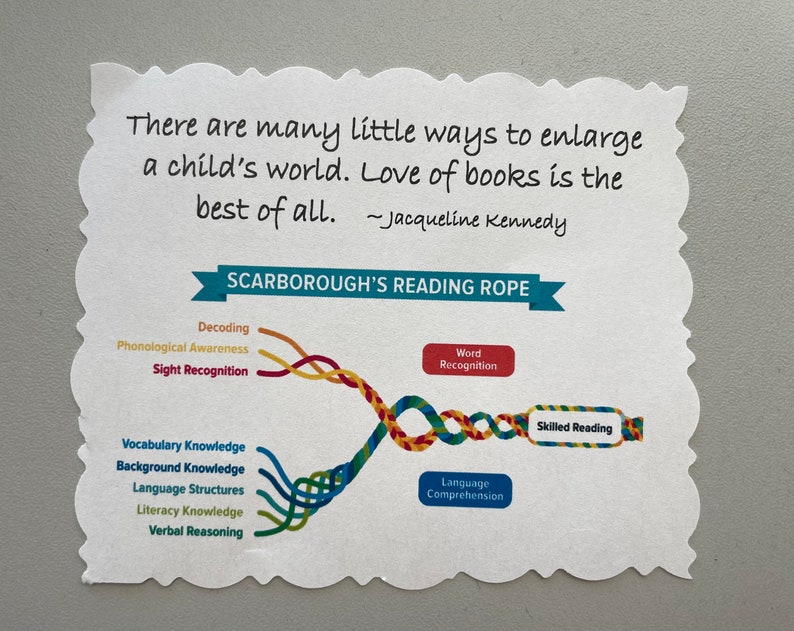 There are many little ways to enlarge
a child's world. Love of books is the
best of all. ~Jacqueline Kennedy
SCARBOROUGH'S READING ROPE
Decoding
Phonological Awareness
Sight Recognition
Word
Recognition
Skilled Reading
Vocabulary Knowledge
Background Knowledge
Language Structures
Literacy Knowledge
Verbal Reasoning
Language
Comprehension